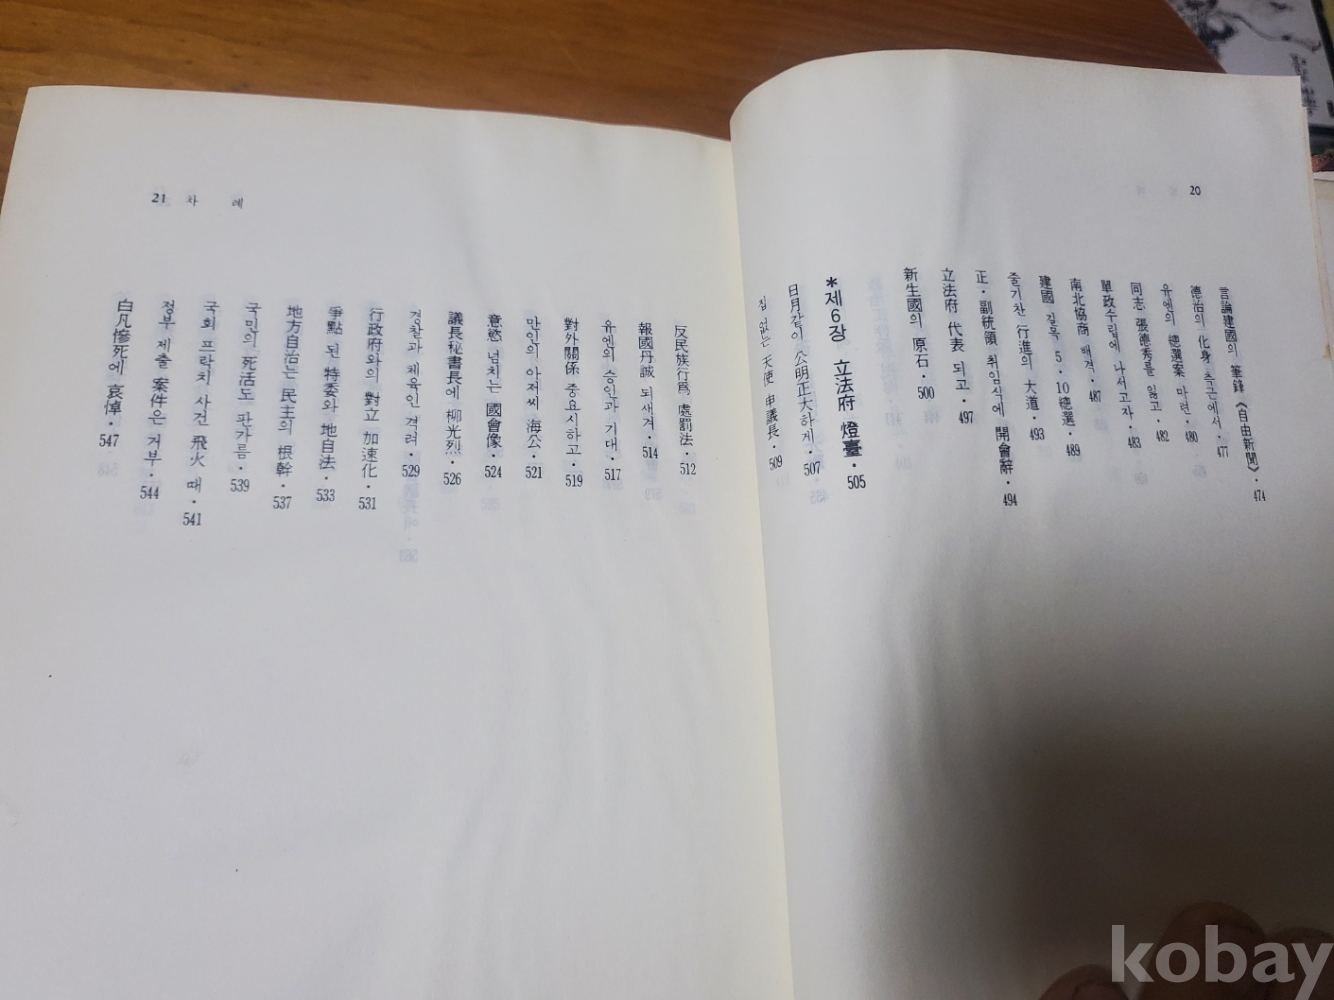 20
言論建國의 筆鋒 《自由新聞》· 474
德治의 化身 측근에서 · 477
유엔의 總選案 마련 · 480
同志 張德秀를 잃고 · 482
單政수립에 나서고자 · 483
南北協商 배격 · 487
建國 길목 5·10總選 · 489
줄기찬 〈行進의 大道〉 493
正·副統領 취임식에 開會辭 · 494
立法府 代表 되고 · 497
新生國의 原石 · 500
*제6장 立法府 燈臺 · 505
日月같이 公明正大하게 · 507
집 없는 天使 申議長 · 509
21 차 례
反民族行爲 處罰法 · 512
報國丹誠 되새겨 · 514
유엔의 승인과 기대 · 517
對外關係 중요시하고 · 519
만인의 아저씨 海公 · 521
意慾 넘치는 國會像 · 524
議長秘書長에 柳光烈 · 526
경찰과 체육인 격려 · 529
行政府와의 對立 加速化 · 531
爭點 된 特委와 地自法 · 533
地方自治는 民主의 根幹 · 537
국민의 死活도 판가름 · 539
국회 프락치 사건 飛火 때 · 541
정부 제출 案件은 거부 · 544
白凡慘死에 哀悼 · 547
kobay